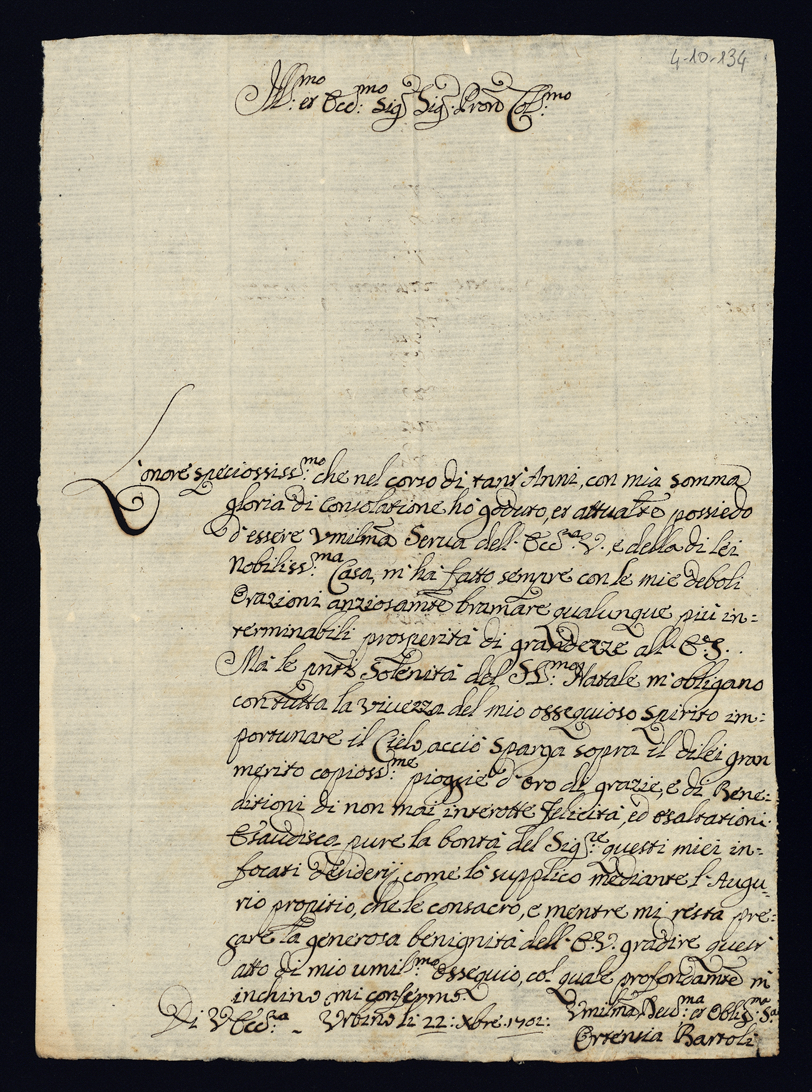 4-10-134
Ill:mo et Ecc:mo Sig Sig: Pron Col:mo
L'onore speciosiss:mo che nel corso di tant'Anni, con mia somma
gloria di consolatione hò goduto, et attualte possiedo
d'essere Vmilma Serua dell'Ecc:za V. e della di lei
Nobiliss:ma Casa, m'hà fatto sempre con le mie deboli
Orazioni anziosamte bramare qualunque più in=
terminabili prosperità di grandezze all'E.V.
Mà le pnti Solenità del SS:mo Natale m'obligano
con tutta la viuezza del mio ossequioso spirito im=
portunare il Cielo, acciò sparga sopra il di lei gran
merito copioss:me pioggie d'oro di grazie, e di Bene=
ditioni di non mai interotte felicità, ed esaltationi.
Esaudisca pure la bontà del Sig:re questi miei in=
focati desiderij, come lo supplico mediante l'Augu=
rio propitio, che le consacro, e mentre mi resta pre=
gare la generosa benignità dell'E.V. gradire quest'
atto di mio umil:mo ossequio, col quale profondamte m'
inchino mi confermo
Di V Ecc:za - Vrbino li 22: Xbre 1702: Vmilma Deu:ma et Oblig:ma Sa
Ortensia Bartoli